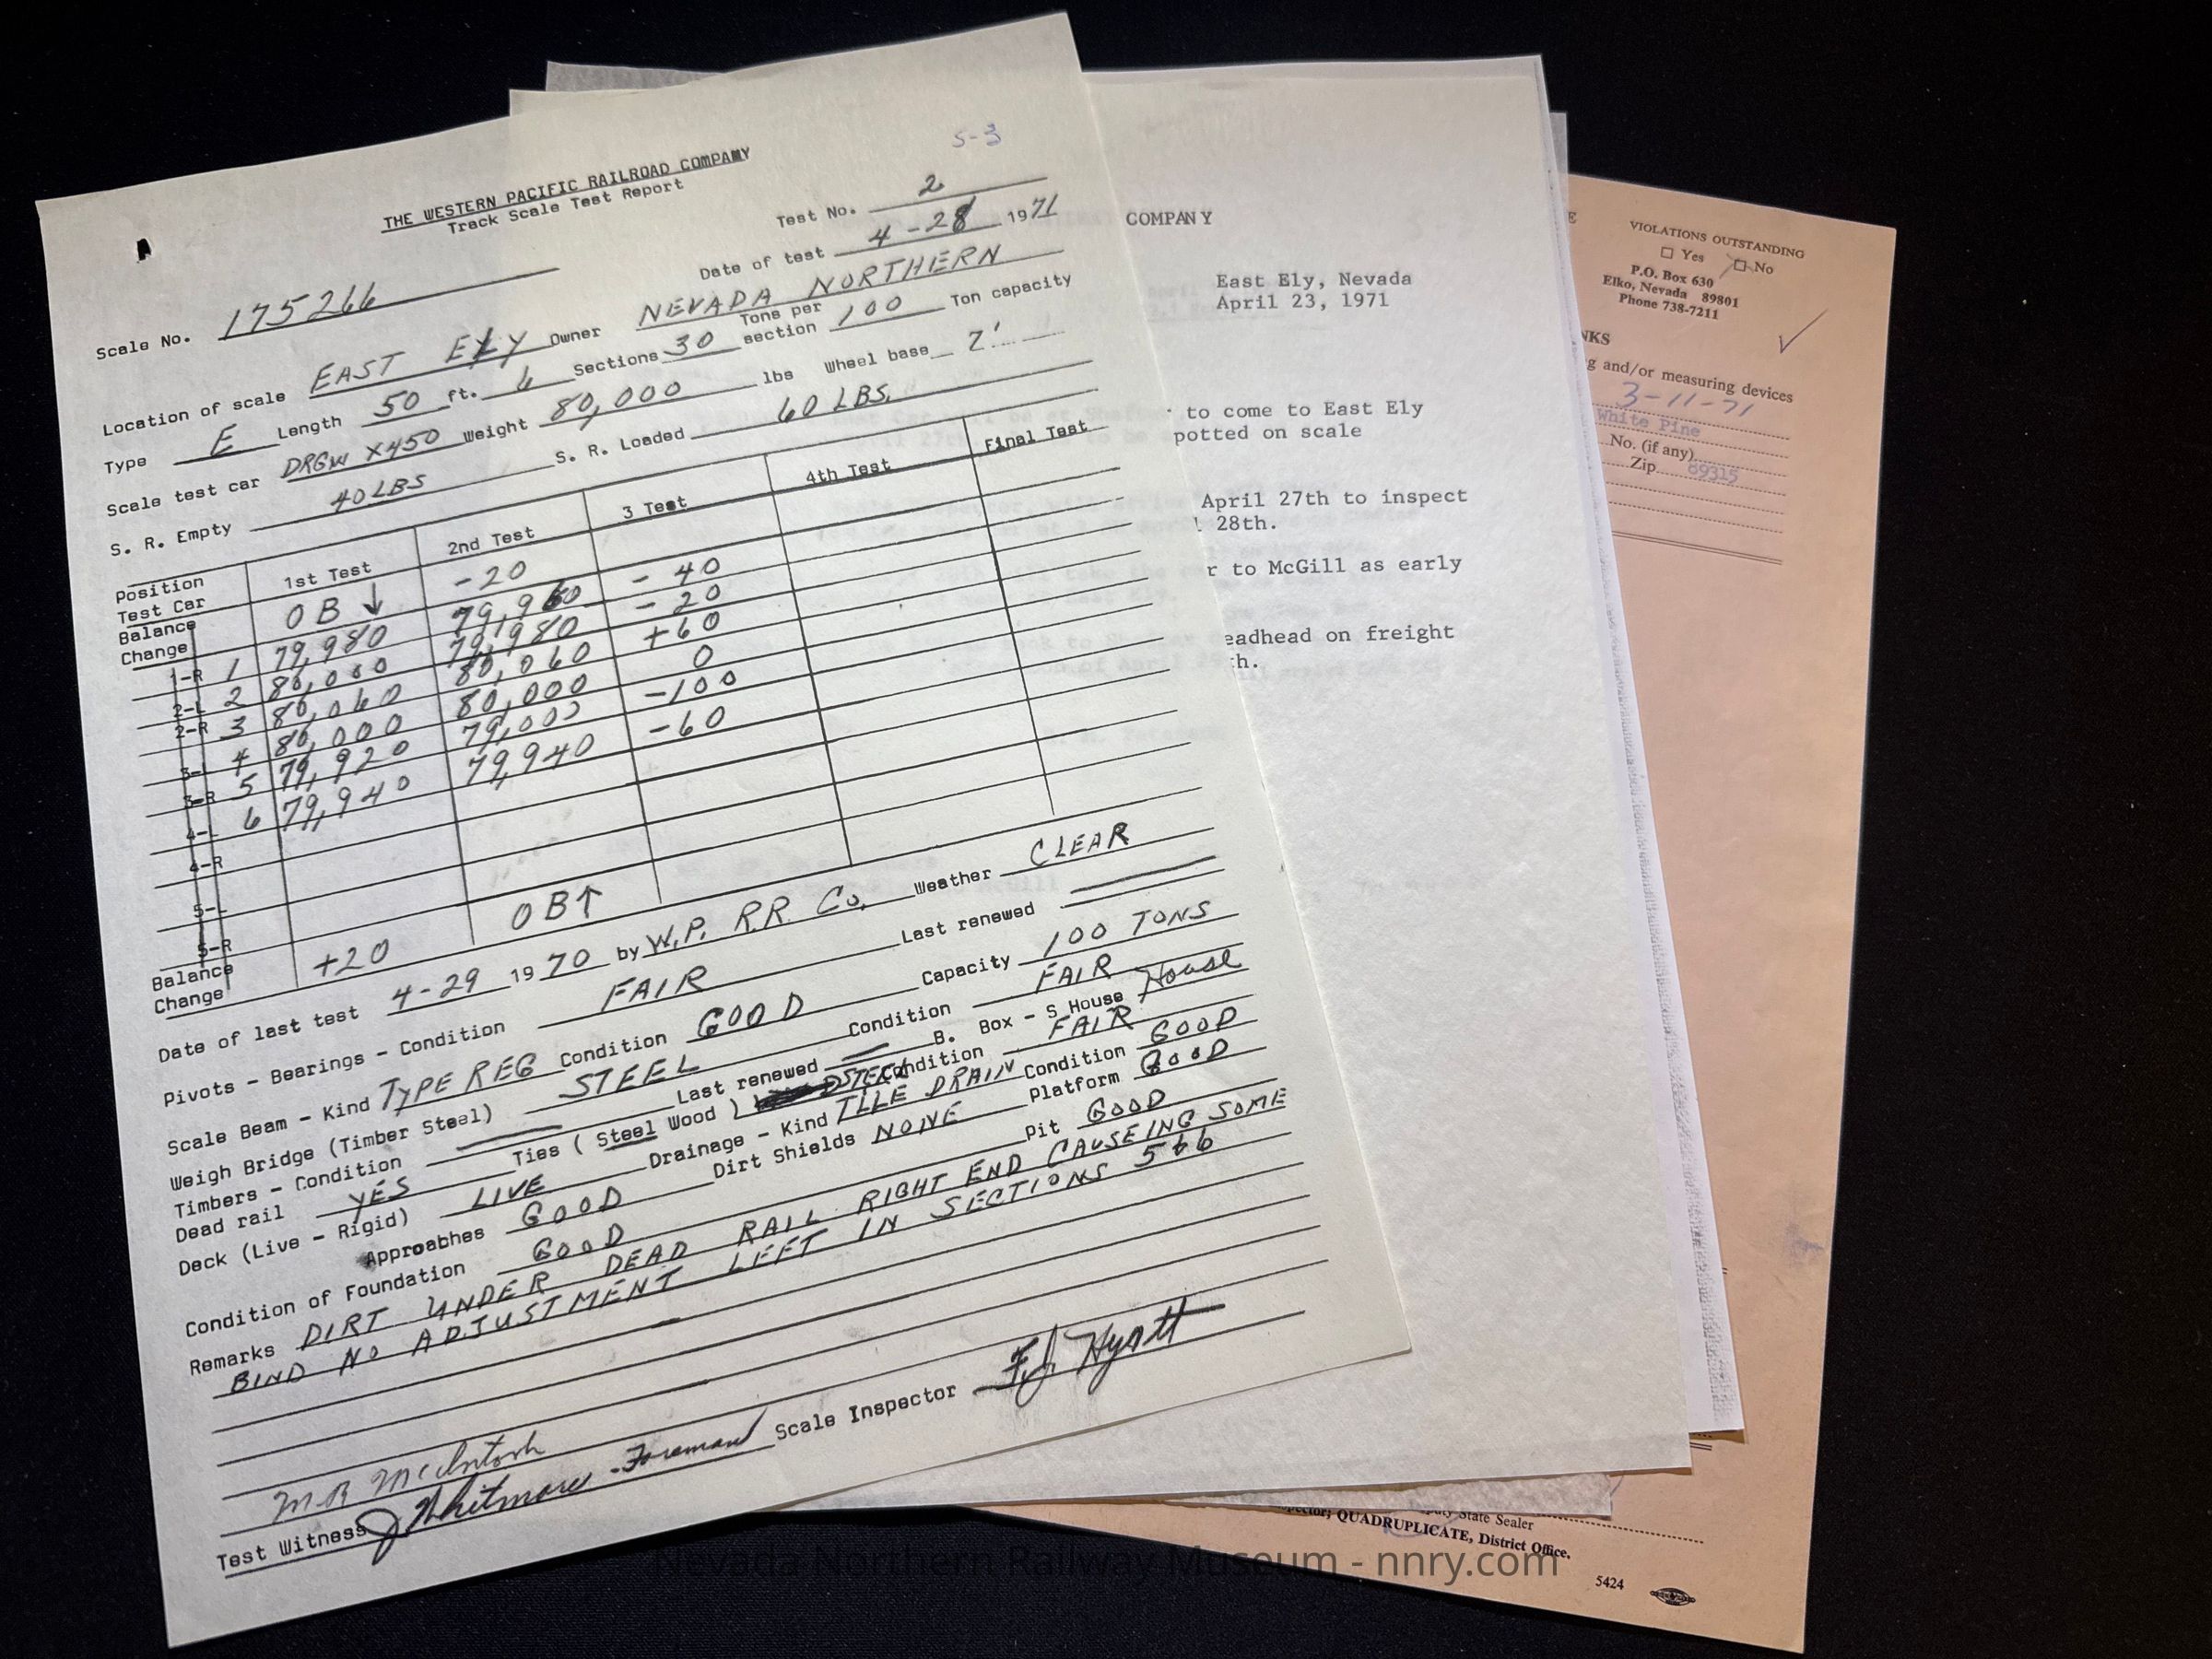 S-3
THE WESTERN PACIFIC RAILROAD COMPANY
Track Scale Test Report
Test No. 2
Date of test 4-28 1971
Scale No. 175266
Location of scale EAST ELY Owner NEVADA NORTHERN
Type E Length 50 ft. 6 Sections 30 Tons per section 100 Ton capacity
Scale test car DRGW X450 Weight 80,000 lbs Wheel base 7'
S. R. Empty 40 LBS S. R. Loaded 60 LBS.
Position Test Car 1st Test 2nd Test 3 Test 4th Test Final Test
Balance Change OB↓ -20
1-R 1 79,980 79,960 - 40
2-L 2 80,000 79,980 - 20
2-R 3 80,060 80,060 +60
3-L 4 80,000 80,000 0
3-R 5 79,920 79,000 -100
4-L 6 79,940 79,940 -60
4-R
5-L
5-R
Balance Change +20 OB↑
Date of last test 4-29 1970 by W.P. R.R. Co. Weather CLEAR
Pivots - Bearings - Condition FAIR Last renewed
Scale Beam - Kind TYPE REG Condition GOOD Capacity 100 TONS
Weigh Bridge (Timber Steel) STEEL Condition FAIR
Timbers - Condition Last renewed B. Box - S House House
Dead rail YES Ties (Steel Wood) STEEL Condition FAIR
Deck (Live - Rigid) LIVE Drainage - Kind TILE DRAIN Condition GOOD
Approabhes GOOD Dirt Shields NONE Platform GOOD
Condition of Foundation GOOD Pit GOOD
Remarks DIRT UNDER DEAD RAIL RIGHT END CAUSEING SOME
BIND NO ADJUSTMENT LEFT IN SECTIONS 5+6
M.R. McIntosh
Test Witness J Whitmare - Foreman Scale Inspector F.J. Hyatt
COMPANY
East Ely, Nevada
April 23, 1971
to come to East Ely
potted on scale
April 27th to inspect
28th.
r to McGill as early
eadhead on freight
th.
VIOLATIONS OUTSTANDING
Yes No
P.O. Box 630
Elko, Nevada 89801
Phone 738-7211
NKS
g and/or measuring devices
3-11-71
White Pine
No. (if any)
Zip 89315
State Sealer
QUADRUPLICATE, District Office.
5424
Nevada Northern Railway Museum - nnry.com